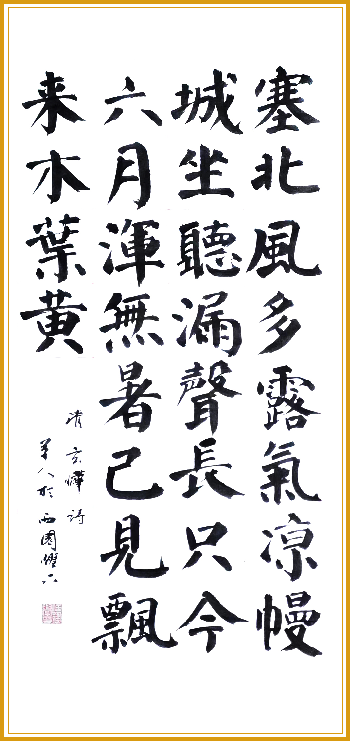 塞北風多露氣涼幔
城坐聽漏聲長只今
六月渾無暑已見飄
来木葉黄
清玄燁詩
人於西園